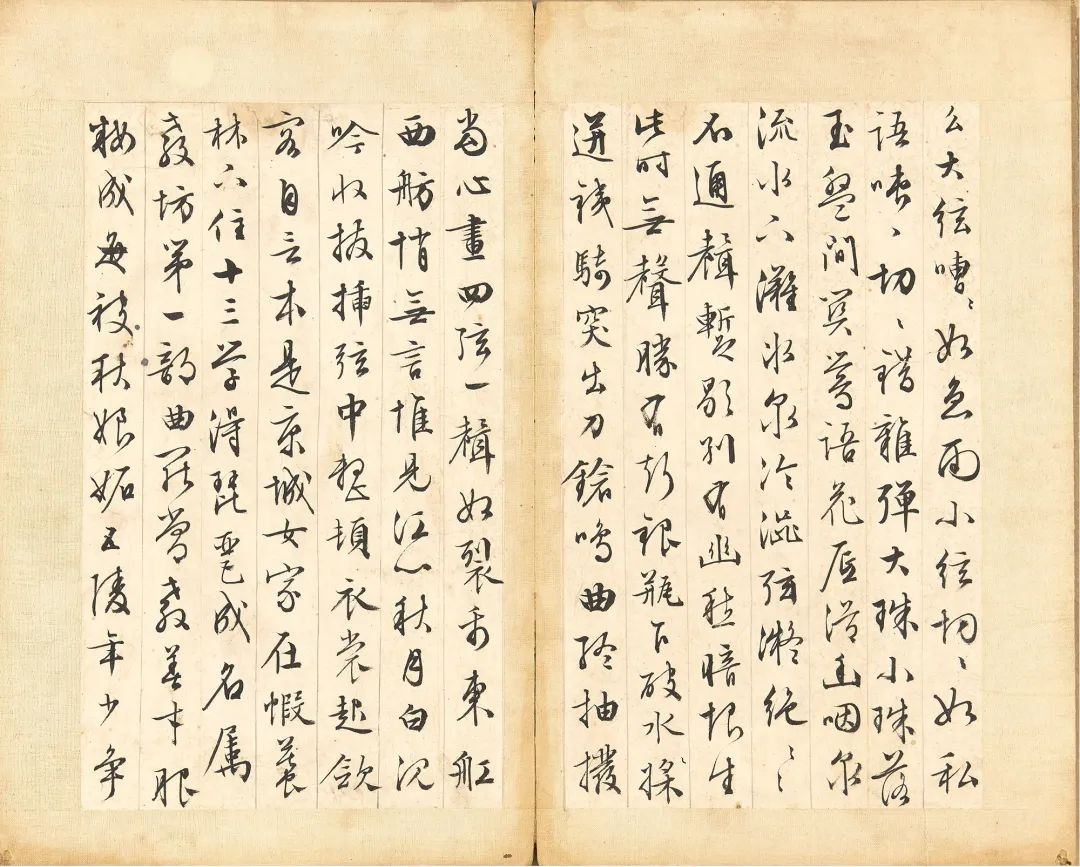 么大弦嘈〻如急雨小弦切〻如私
語嘈〻切〻錯雜彈大珠小珠落
玉盤間關鶯語花底滑幽咽泉
流水下灘冰泉冷澀弦凝絕〻
不通聲暫歇別有幽愁暗恨生
此時無聲勝有聲銀瓶乍破水漿
迸鐵騎突出刀鎗鳴曲終抽撥
當心畫四弦一聲如裂帛東船
西舫悄無言惟見江心秋月白沉
吟收撥插弦中整頓衣裳起斂
容自言本是京城女家在蝦蟇
林下住十三學得琵琶成名屬
教坊第一部曲罷嘗教善才服
粧成每被秋娘妬五陵年少爭